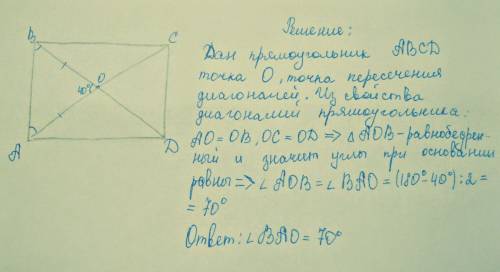 B
C
O
40°
A
D
Решение:
Дан прямоугольник ABCD
точка О, точка пересечения
диагоналей. Из свойства
диагоналий прямоугольника:
AO = OB, OC = OD => △ AOB - равнобедрен-
ный и значит углы при основании
равны => ∠ AOB = ∠ BAO = (180° - 40°) : 2 =
= 70°
Ответ: ∠ BAO = 70°